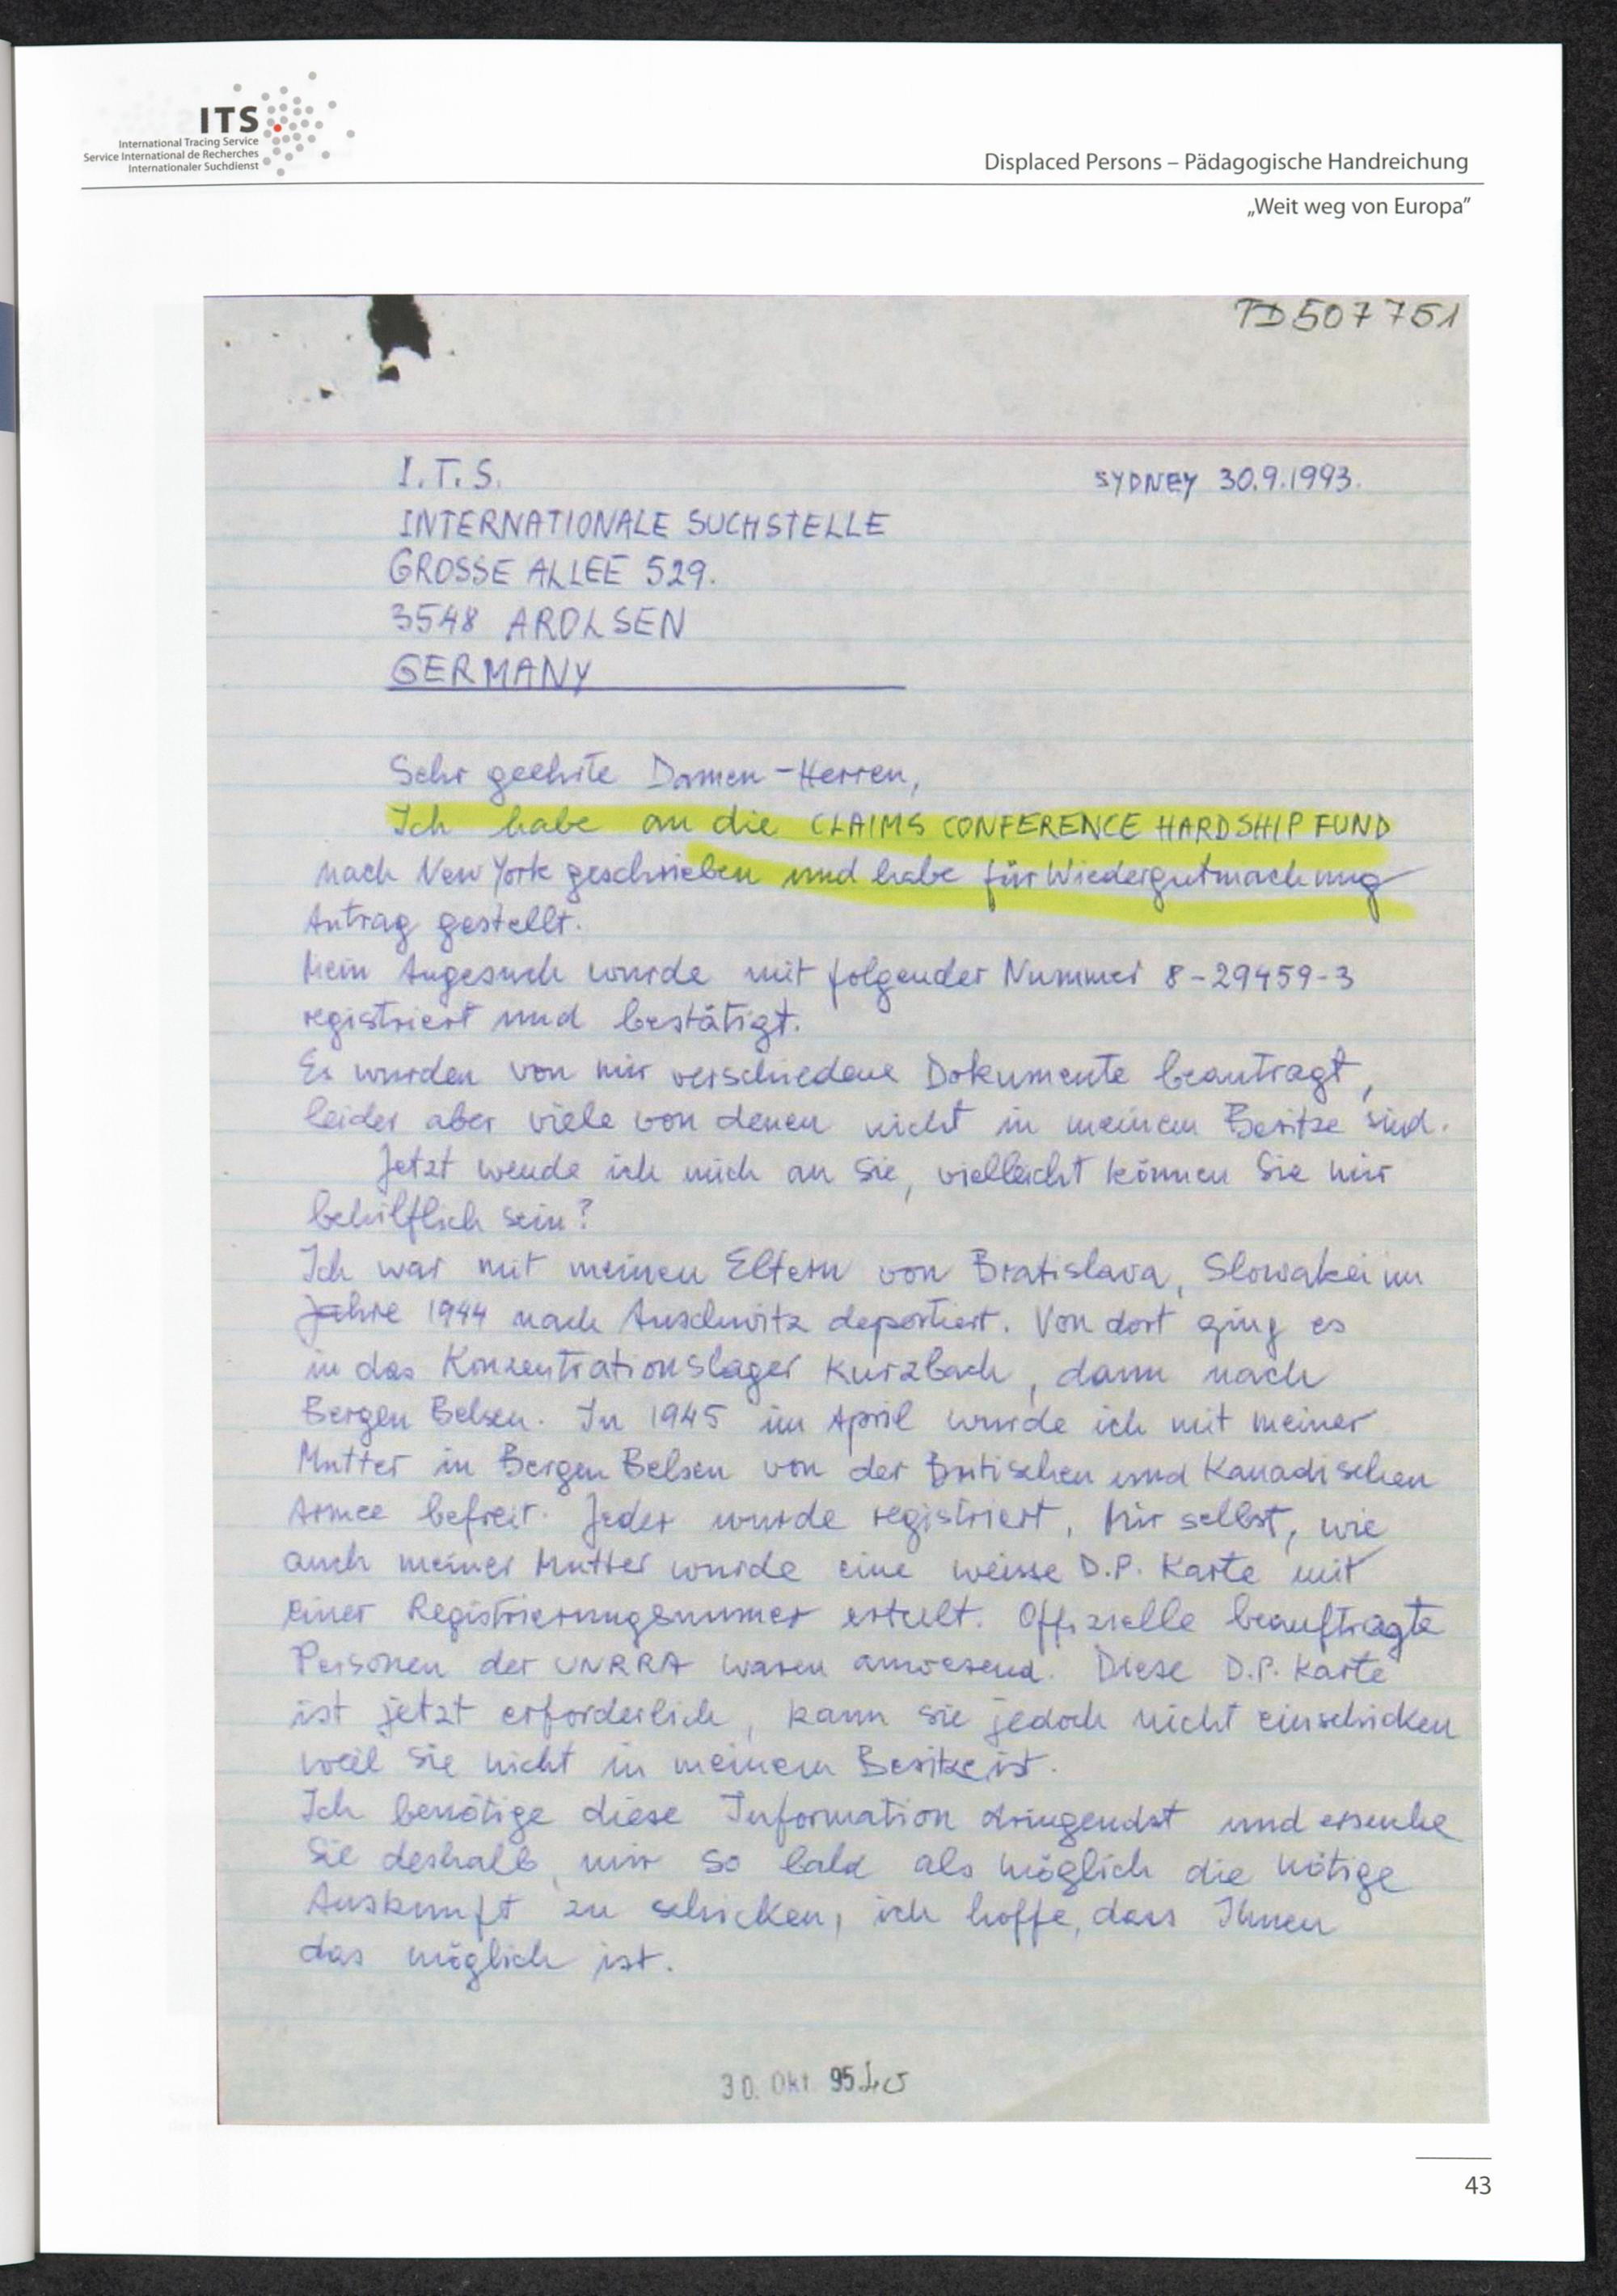 ITS
International Tracing Service
Service International de Recherches
Internationaler Suchdienst
Displaced Persons – Pädagogische Handreichung
„Weit weg von Europa”
TD 507 751
I.T.S.
SYDNEY 30.9.1993.
INTERNATIONALE SUCHSTELLE
GROSSE ALLEE 529.
3548 AROLSEN
GERMANY
Sehr geehrte Damen - Herren,
Ich habe an die CLAIMS CONFERENCE HARDSHIP FUND
nach New York geschrieben und habe für Wiedergutmachung
Antrag gestellt.
Mein Angesuch wurde mit folgender Nummer 8-29459-3
registriert und bestätigt.
Es wurden von mir verschiedene Dokumente beantragt,
leider aber viele von denen nicht in meinem Besitze sind.
Jetzt wende ich mich an Sie, vielleicht können Sie mir
behilflich sein?
Ich war mit meinen Eltern von Bratislava, Slowakei im
Jahre 1944 nach Auschwitz deportiert. Von dort ging es
in das Konzentrationslager Kurzbach, dann nach
Bergen Belsen. In 1945 im April wurde ich mit meiner
Mutter in Bergen Belsen von der Britischen und Kanadischen
Armee befreit. Jeder wurde registriert. Mir selbst, wie
auch meiner Mutter wurde eine weisse D.P. Karte mit
einer Registrierungsnummer erteilt. Offizielle beauftragte
Personen der UNRRA waren anwesend. Diese D.P. Karte
ist jetzt erforderlich, kann sie jedoch nicht einschicken
weil sie nicht in meinem Besitze ist.
Ich benötige diese Information dringendst und ersuche
Sie deshalb, mir so bald als möglich die nötige
Auskunft zu schicken, ich hoffe, dass Ihnen
das möglich ist.
30. Okt. 95
43